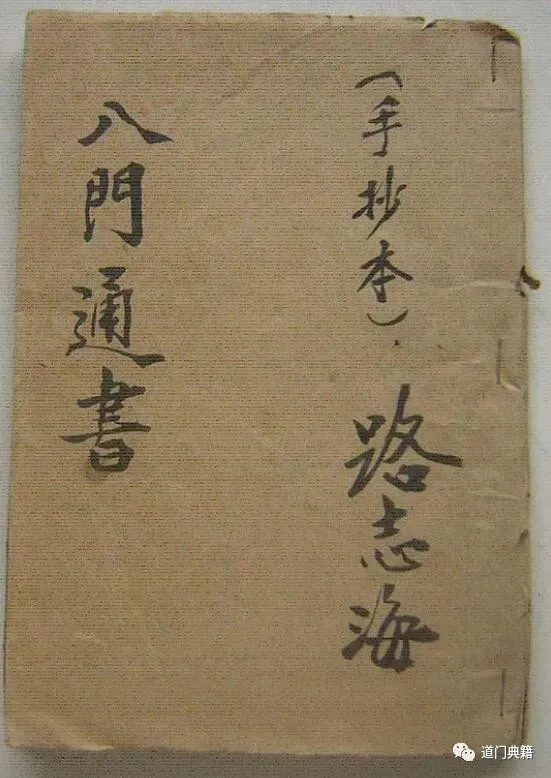 （手抄本）.
路志海
八門通書
道门典籍